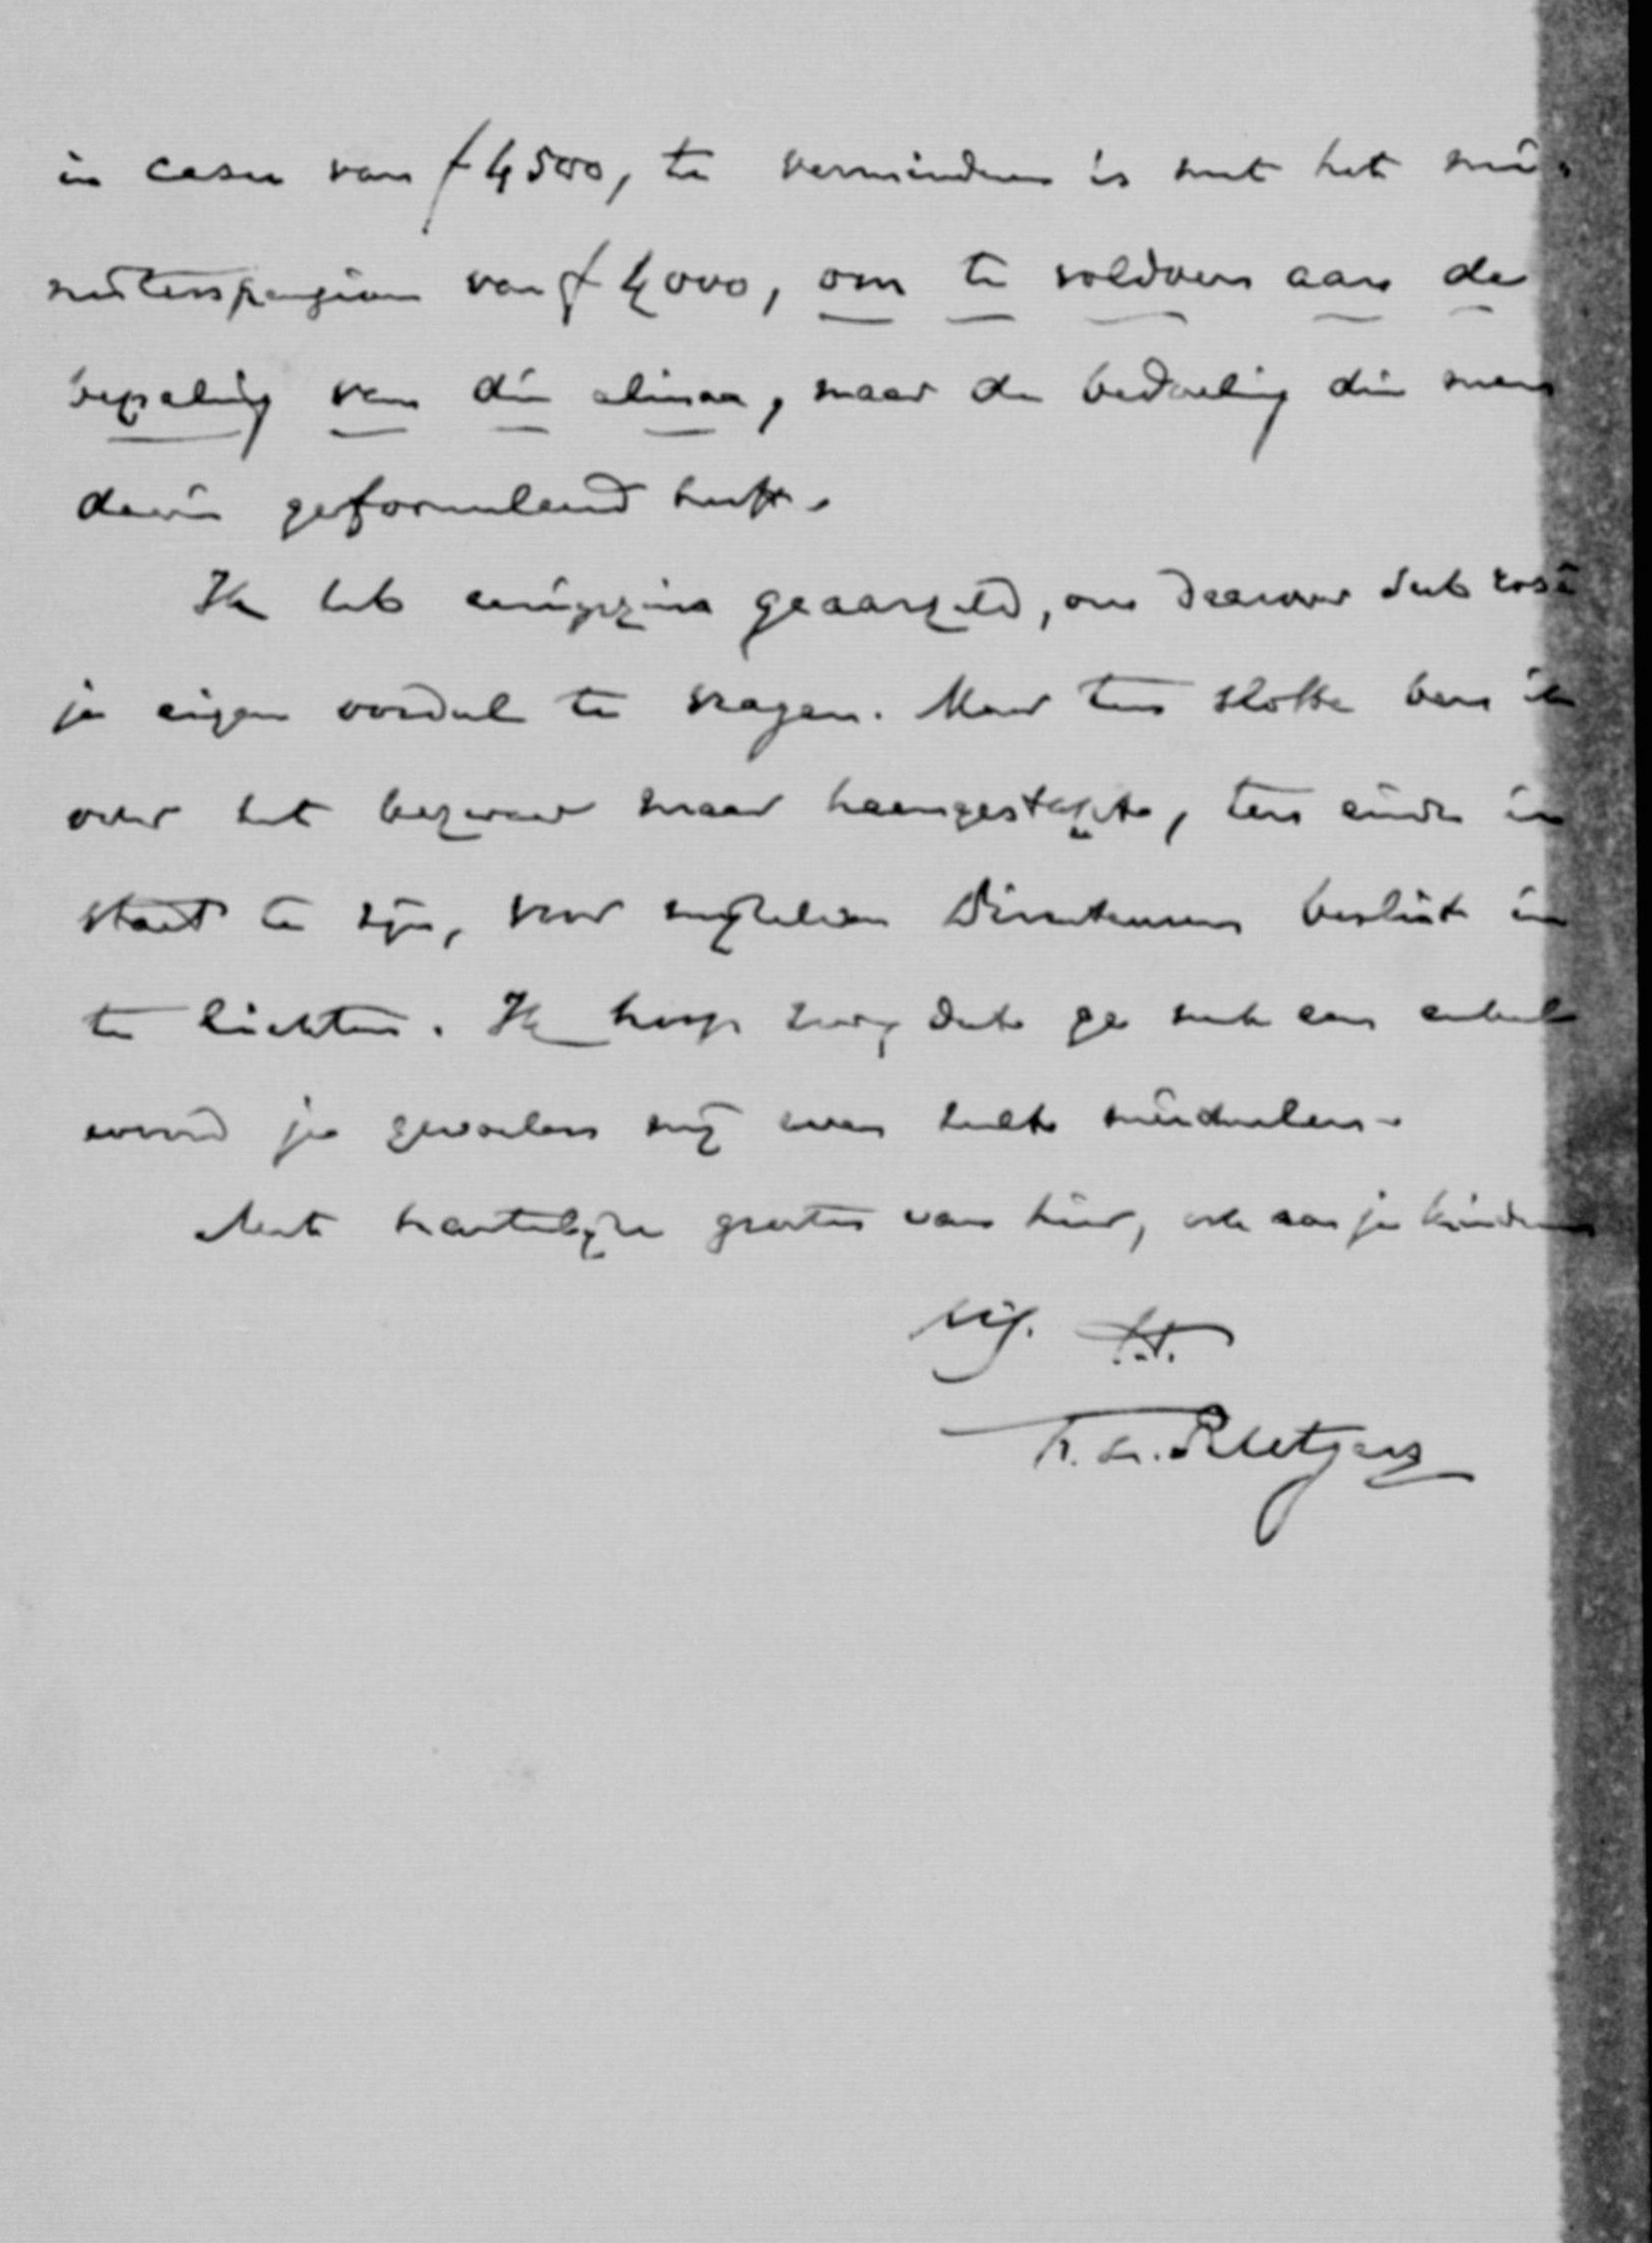 in casu van f 4500, te verminderen is met het mi-
nisterspensioen van f 4000, om te voldoen aan de
bepaling van die alinea, maar de bedoeling die men
daarin geformuleerd heeft.
Ik heb eenigszins geaarzeld, om daarover sub rosa
je eigen oordeel te vragen. Maar ten slotte ben ik
over het bezwaar maar heengestapt, ten einde in
staat te zijn, voor mogelijk Directeuren beslist in
te lichten. Ik hoop zeer, dat ge met een enkel
woord je gevoelen mij even zult meedeelen.
Met hartelijke groeten van hier, ook aan je kinderen
t.t.
F. L. Rutgers